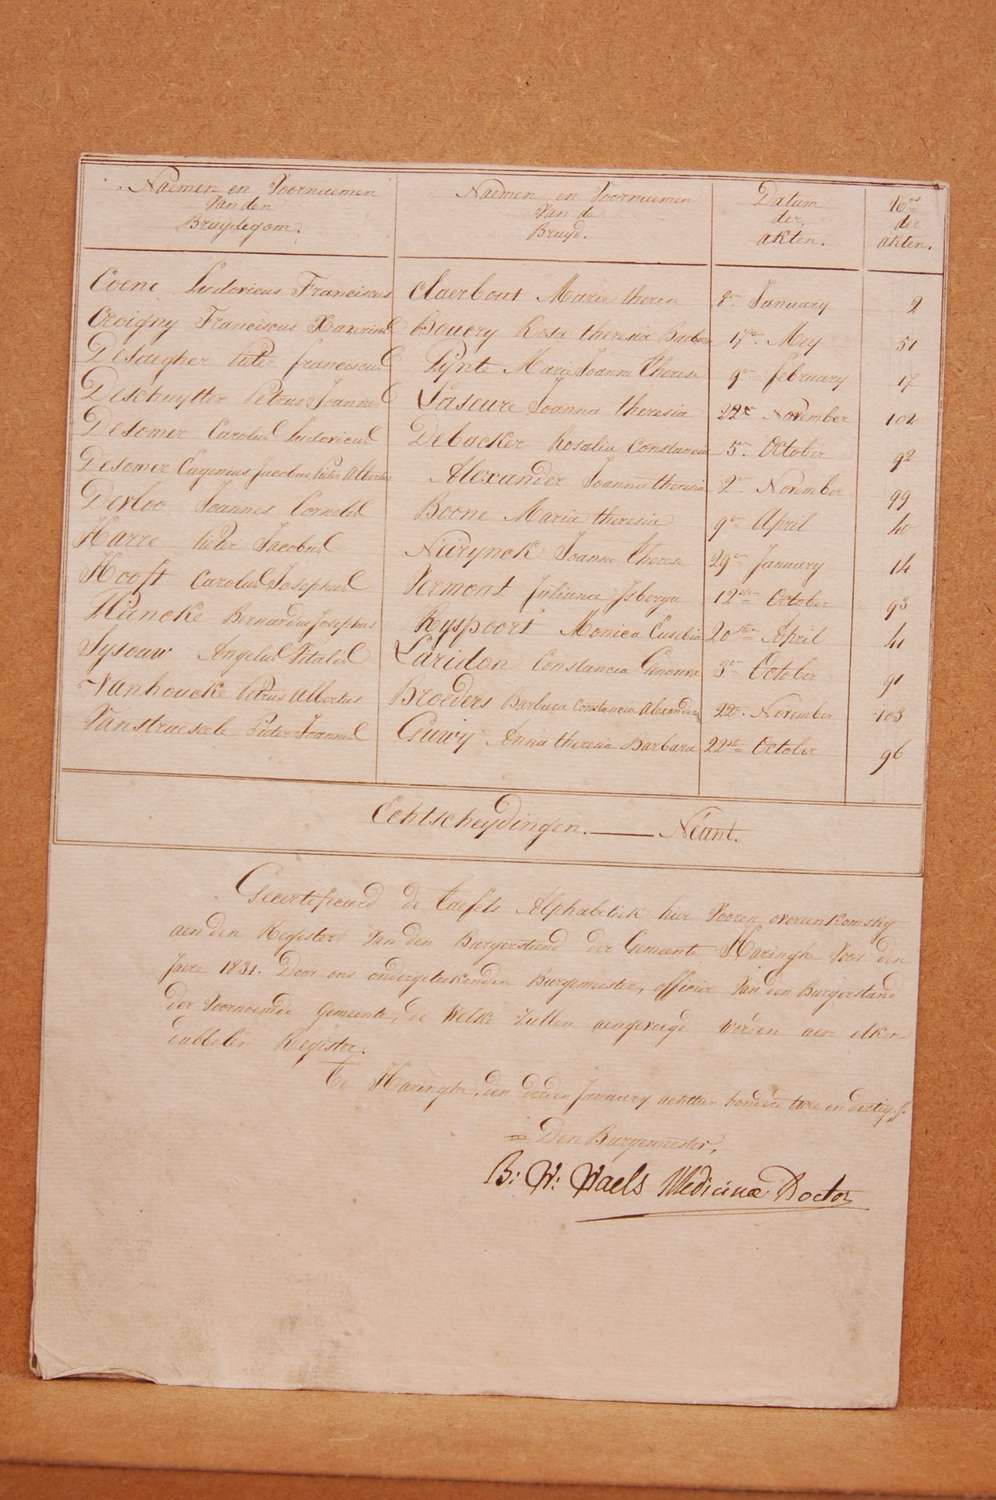 Naemen en Voornaemen Van den Bruydegom.
Naemen en Voornaemen Van de Bruyd.
Datum der akten.
N.os der akten.
Coene Ludovicus Franciscus Claerbout Marie therese 8en January 9
Croigny Franciscus Xaverius Bouery Rosa theresia Barbe 17en Mey 51
Desaegher Pieter franciscus Pynte Marie Joanne therese 9en february 17
Deschuytter Petrus Joannes Laseure Joanna theresia 22en November 102
Desomer Carolus Ludovicus Debacker Rosalia Constancia 5en October 92
Desomer Eugenius Jacobus Pieter Albertus Alexander Joanna theresia 2en November 99
Devloo Joannes Cornelis Boone Maria theresia 9en April 40
Harre Pieter Jacobus Nuerynck Joanne therese 29en January 14
Hooft Carolus Josephus Vermont Juliana Isberga 12en October 93
Huncke Bernardus Josephus Ryspoort Monica Eusebia 20en April 41
Lysouw Angelus Vitalis Laridon Constancia Genoveva 3en October 91
Vanhoucke Petrus Albertus Broeders Barbara Constancia Alexandrina 22en November 103
Vanstraeseele Pieter Joannes Gruwy Anna theresia Barbara 22en October 96
Echtscheydingen. Néant.
Gecertificeerd de taefels Alphabetiek hier Vooren, overeenkomstig
aen den Register Van den Burgerstand der Gemeente Haringhe Voor den
Jaere 1831. Door ons ondergeteekenden Burgemeester, officier Van den Burgerstand
der Voornoemde Gemeente, de Welke zullen aengevoegd worden aen elken
dubbelen Register.
Te Haringhe, den derden January achttien honderd twee en dertig.
Den Burgemeester,
B: W: Waels Medicinæ Doctor